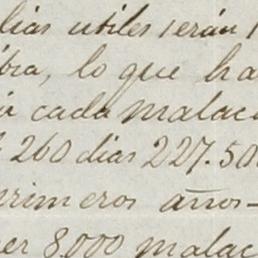 lias utiles serán
bra, lo que ha
cada malac
260 dias 227.50
rimeros años-
er 8,000 malac